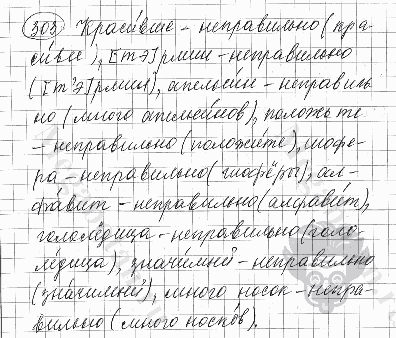 303 Красѝвше - неправильно (кра-
си́вее), [тэ]рмин - неправильно
([т'э]рмин), апельсин - неправиль-
но (много апельсинов), положьте
- неправильно (положи́те), шофе-
ра - неправильно (шофёры), ал-
фа́вит - неправильно (алфави́т),
гололе́дица - неправильно (голо-
ле́дица), значи́мый - неправильно
(зна́чимый), много носок - непра-
вильно (много носко́в).